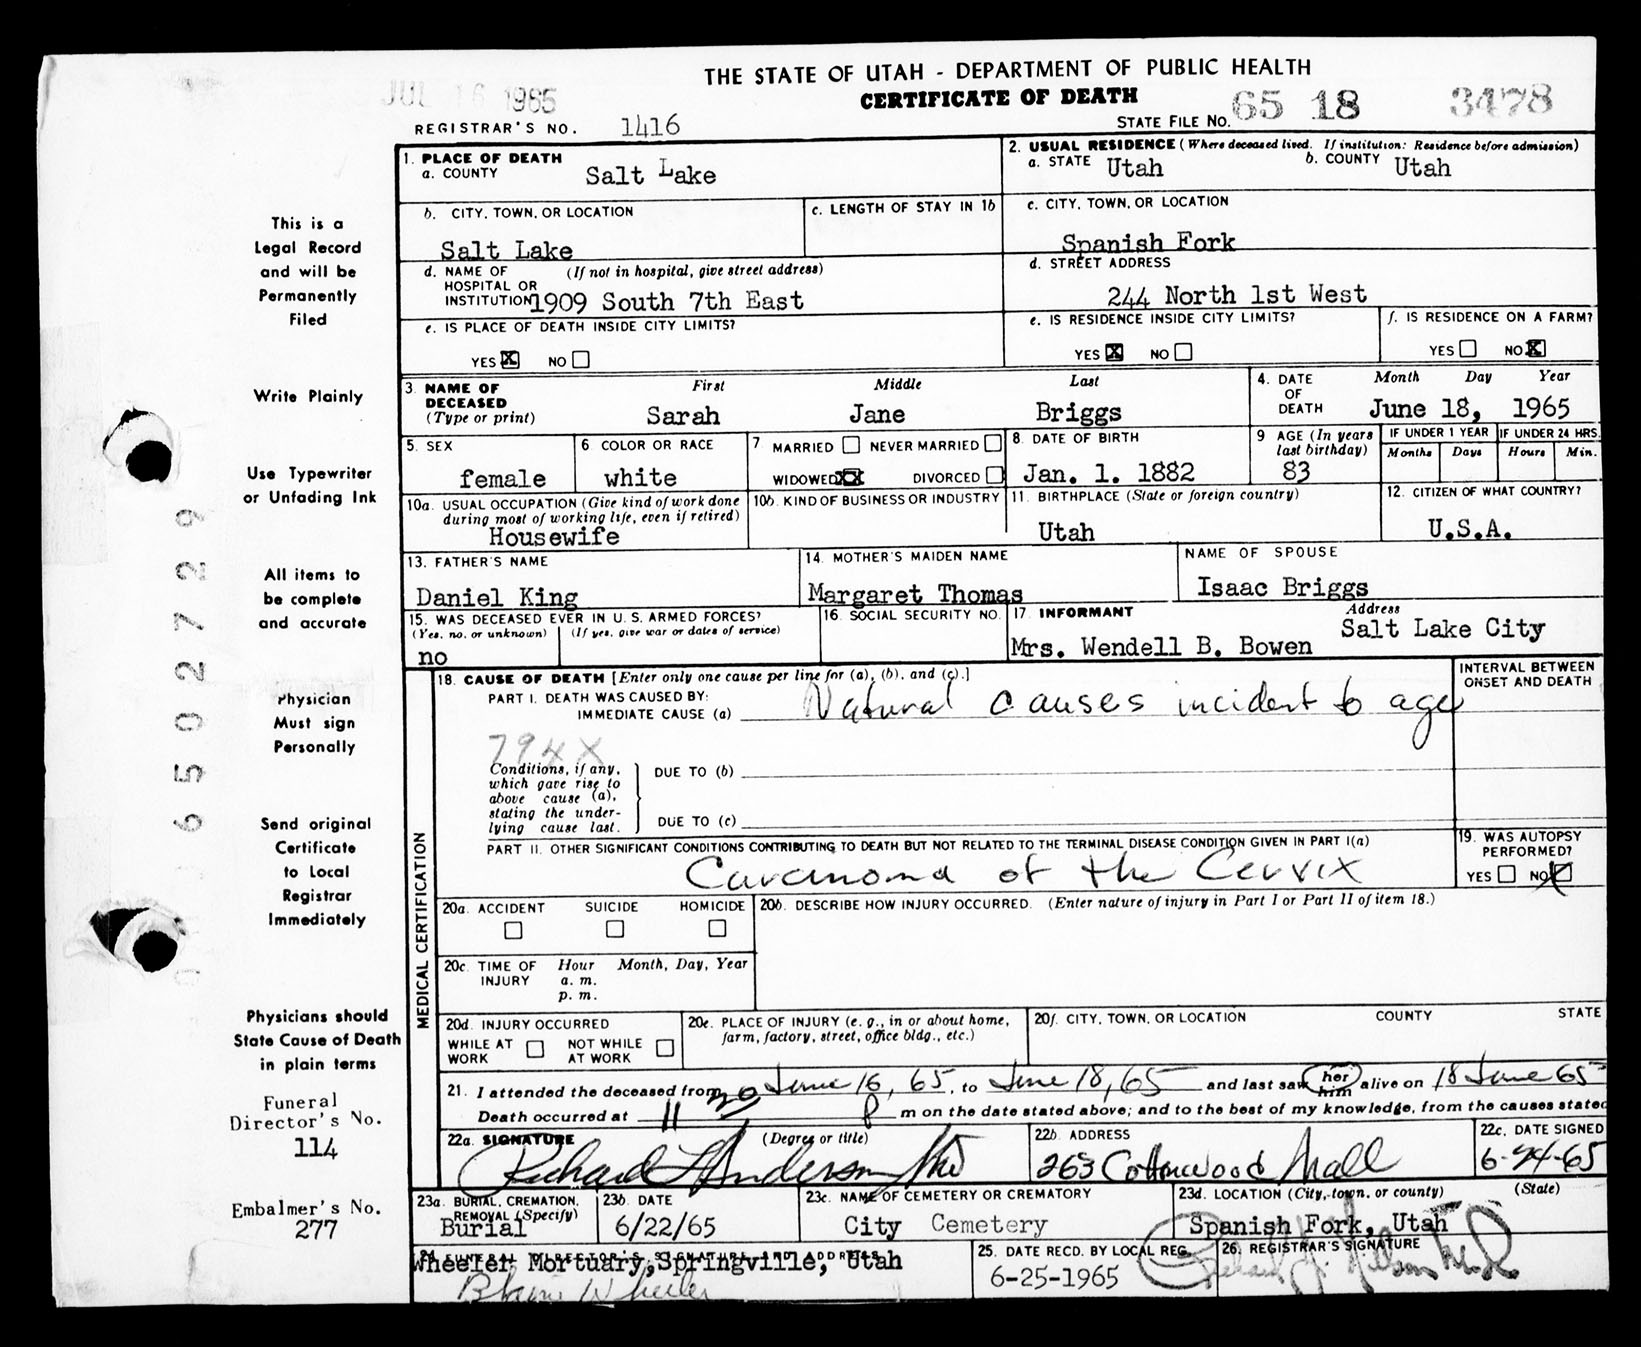 THE STATE OF UTAH - DEPARTMENT OF PUBLIC HEALTH
JUL 16 1965
CERTIFICATE OF DEATH
REGISTRAR'S NO. 1416
STATE FILE NO. 65 18 3478
1. PLACE OF DEATH
a. COUNTY Salt Lake
2. USUAL RESIDENCE (Where deceased lived. If institution: Residence before admission)
a. STATE Utah b. COUNTY Utah
b. CITY, TOWN, OR LOCATION
Salt Lake
c. LENGTH OF STAY IN 1b
c. CITY, TOWN, OR LOCATION
Spanish Fork
d. NAME OF HOSPITAL OR INSTITUTION (If not in hospital, give street address)
1909 South 7th East
d. STREET ADDRESS
244 North 1st West
e. IS PLACE OF DEATH INSIDE CITY LIMITS?
YES X NO
e. IS RESIDENCE INSIDE CITY LIMITS?
YES X NO
f. IS RESIDENCE ON A FARM?
YES NO X
3. NAME OF DECEASED (Type or print)
First Middle Last
Sarah Jane Briggs
4. DATE OF DEATH Month Day Year
June 18, 1965
5. SEX
female
6 COLOR OR RACE
white
7 MARRIED NEVER MARRIED
WIDOWED XX DIVORCED
8. DATE OF BIRTH
Jan. 1. 1882
9 AGE (In years last birthday)
83
IF UNDER 1 YEAR IF UNDER 24 HRS.
Months Days Hours Min.
10a. USUAL OCCUPATION (Give kind of work done during most of working life, even if retired)
Housewife
10b. KIND OF BUSINESS OR INDUSTRY
11. BIRTHPLACE (State or foreign country)
Utah
12. CITIZEN OF WHAT COUNTRY?
U.S.A.
13. FATHER'S NAME
Daniel King
14. MOTHER'S MAIDEN NAME
Margaret Thomas
NAME OF SPOUSE
Isaac Briggs
15. WAS DECEASED EVER IN U.S. ARMED FORCES?
(Yes, no, or unknown) (If yes, give war or dates of service)
no
16. SOCIAL SECURITY NO.
17. INFORMANT Address
Mrs. Wendell B. Bowen Salt Lake City
MEDICAL CERTIFICATION
18. CAUSE OF DEATH [Enter only one cause per line for (a), (b), and (c).]
INTERVAL BETWEEN ONSET AND DEATH
PART I. DEATH WAS CAUSED BY:
IMMEDIATE CAUSE (a) Natural causes incident to age
794X
Conditions, if any, which gave rise to above cause (a), stating the underlying cause last.
DUE TO (b)
DUE TO (c)
PART II. OTHER SIGNIFICANT CONDITIONS CONTRIBUTING TO DEATH BUT NOT RELATED TO THE TERMINAL DISEASE CONDITION GIVEN IN PART I(a)
Carcinoma of the Cervix
19. WAS AUTOPSY PERFORMED?
YES NO X
20a. ACCIDENT SUICIDE HOMICIDE
20b. DESCRIBE HOW INJURY OCCURRED. (Enter nature of injury in Part I or Part II of item 18.)
20c. TIME OF INJURY Hour Month, Day, Year
a. m.
p. m.
20d. INJURY OCCURRED
WHILE AT WORK NOT WHILE AT WORK
20e. PLACE OF INJURY (e. g., in or about home, farm, factory, street, office bldg., etc.)
20f. CITY, TOWN, OR LOCATION COUNTY STATE
21. I attended the deceased from June 16, 65, to June 18, 65 and last saw her him alive on 18 June 65
Death occurred at 11 30 P m on the date stated above; and to the best of my knowledge, from the causes stated
22a. SIGNATURE (Degree or title)
Richard L Anderson MD
22b. ADDRESS
263 Cottonwood Mall
22c. DATE SIGNED
6-24-65
23a. BURIAL, CREMATION, REMOVAL (Specify)
Burial
23b. DATE
6/22/65
23c. NAME OF CEMETERY OR CREMATORY
City Cemetery
23d. LOCATION (City, town, or county) (State)
Spanish Fork, Utah
24. FUNERAL DIRECTOR'S SIGNATURE AND ADDRESS
Wheeler Mortuary, Springville, Utah
Blaine Wheeler
25. DATE RECD. BY LOCAL REG.
6-25-1965
26. REGISTRAR'S SIGNATURE
This is a
Legal Record
and will be
Permanently
Filed
Write Plainly
Use Typewriter
or Unfading Ink
All items to
be complete
and accurate
Physician
Must sign
Personally
Send original
Certificate
to Local
Registrar
Immediately
Physicians should
State Cause of Death
in plain terms
Funeral
Director's No.
114
Embalmer's No.
277
6502729